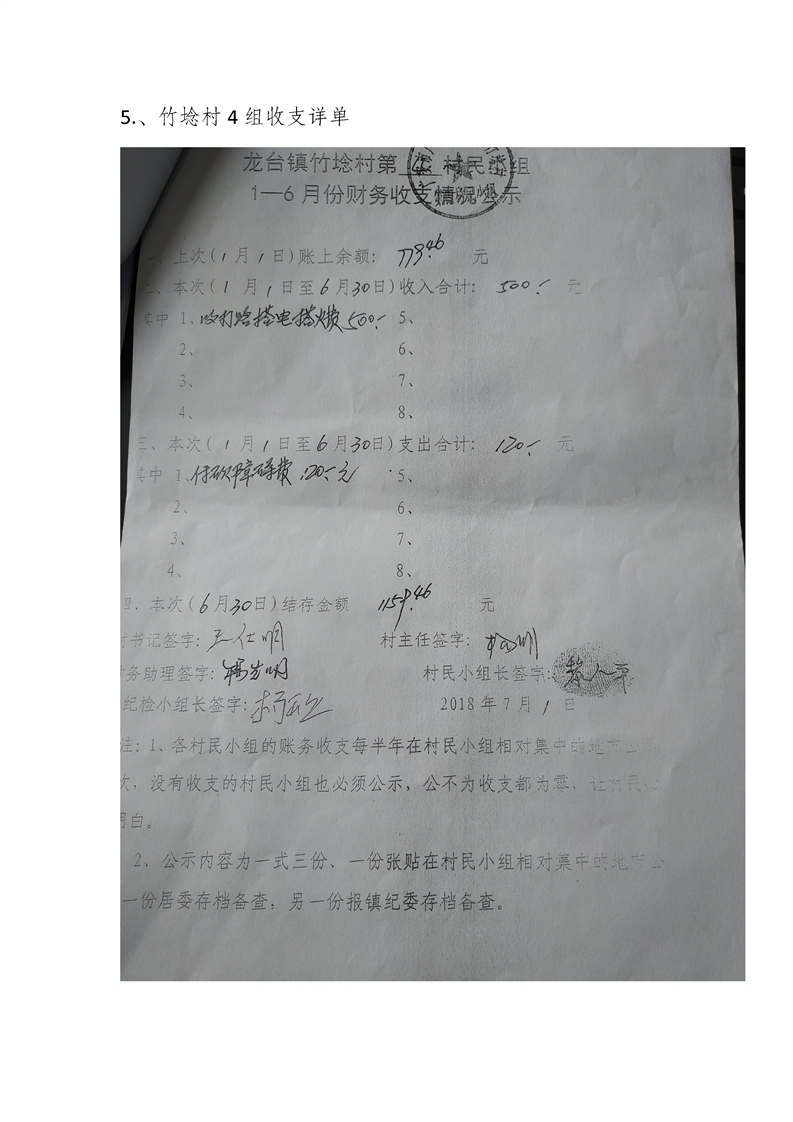 5.、竹埝村 4 组收支详单
龙台镇竹埝村第 村民小组
1—6 月份财务收支情况公示
一、上次(1月1日)账上余额: 779.46 元
二、本次(1月1日至6月30日)收入合计: 500.- 元
其中 1、收打路搭电搭火费500.- 5、
2、 6、
3、 7、
4、 8、
三、本次(1月1日至6月30日)支出合计: 120.- 元
其中 1、付砍障碍费120.-元 5、
2、 6、
3、 7、
4、 8、
四、本次(6月30日)结存金额 1159.46 元
村书记签字:王仕明 村主任签字:
财务助理签字:杨光明 村民小组长签字:
纪检小组长签字: 2018年7月1日
注:1、各村民小组的账务收支每半年在村民小组相对集中的地方公
次,没有收支的村民小组也必须公示,公不为收支都为零,让村民心
明白。
2、公示内容为一式三份、一份张贴在村民小组相对集中的地方公
一份居委存档备查,另一份报镇纪委存档备查。